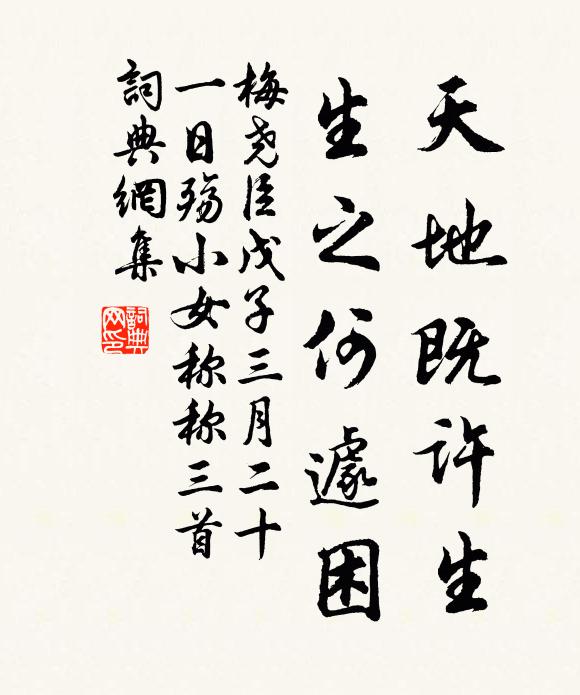 天地既许生
生之何遽困
梅尧臣戊子三月二十
一日殇小女称称三首
詞典網集
詞典网印